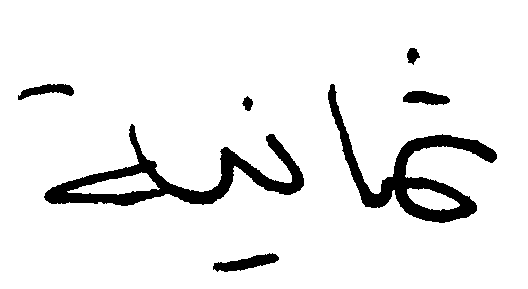 ثمانية